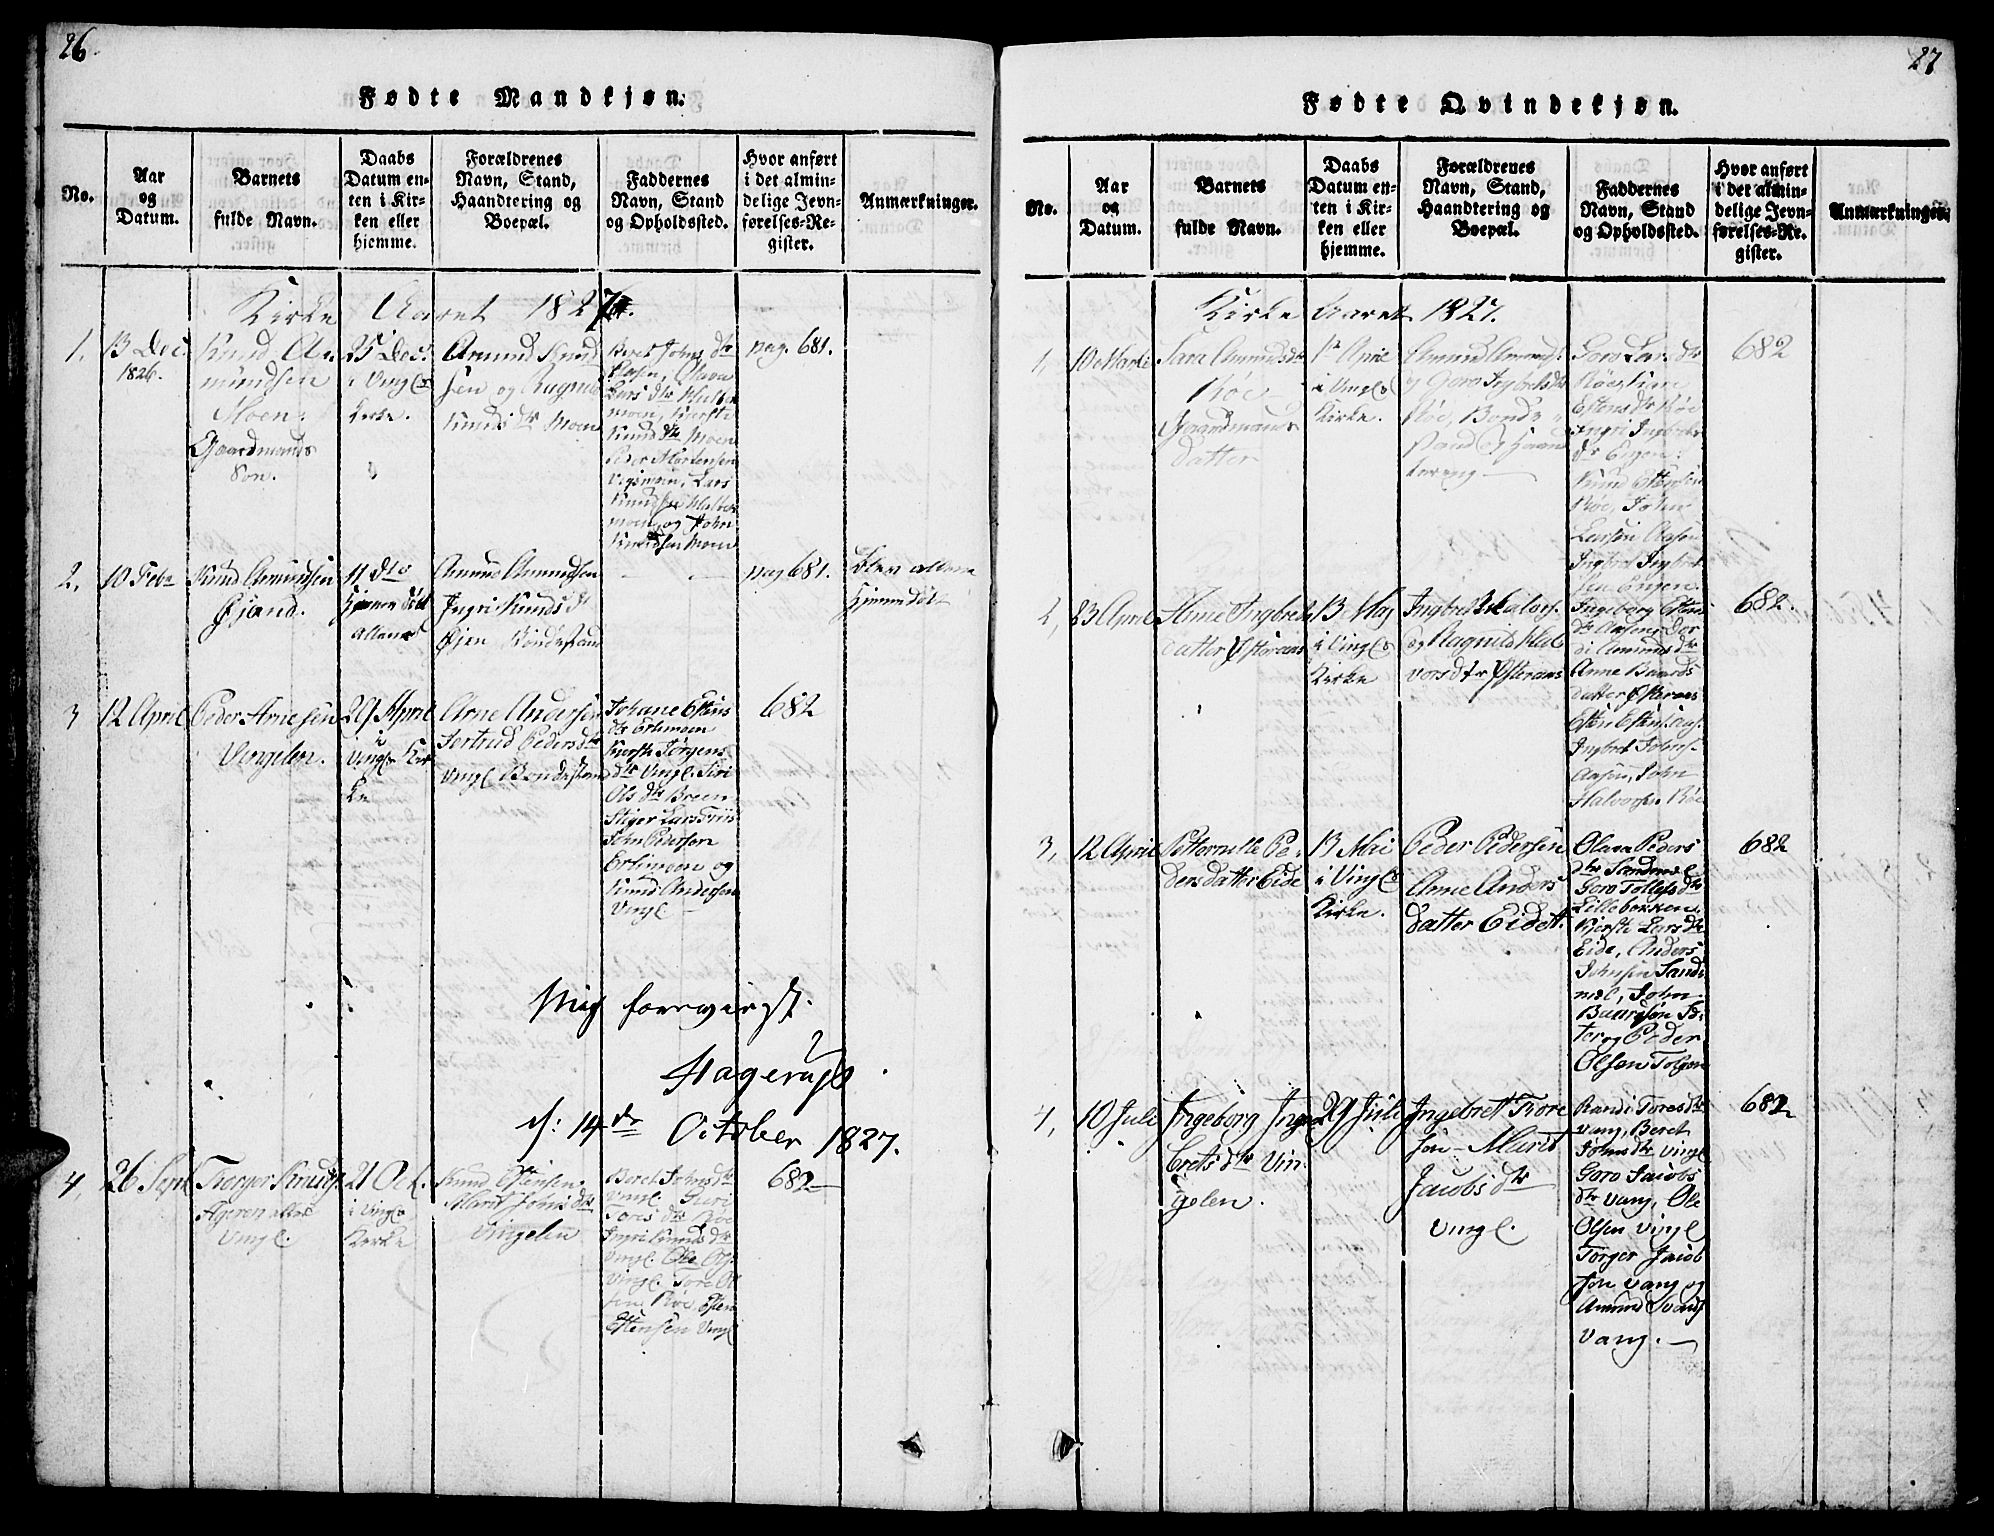 26.
Fødte Mandkjøn.
No.
Aar
og
Datum.
Barnets
fulde Navn.
Daabs
Datum en-
ten i Kir-
ken eller
hjemme.
Forældrenes
Navn, Stand,
Haandtering og
Boepæl.
Faddernes
Navn, Stand
og Opholdssted.
Hvor anført
i det almin-
delige Jevn-
førelses-Re-
gister.
Anmærkninger.
Kirke Aaret 1827.
1.
13 Dec.
1826.
Knud Am
mundsen
Moen.
Gaardmands
Søn.
25 Dec.
i Vingl.
Kirke.
Amund Knud
sen og Ragnild
Knuds dr Moen
Beret Johns dr
Olava
Lars dr
moen, Kersti
Knud dr Moen
Peder Mortensen
Vigsmoen, Lars
Knudsen
moen og John
Knudsen Moen
pag. 681.
2.
10 Febr
Knud Amundsen
Øjand.
11 dto
Hjemme døbt
Amund Amundsen
Ingri Knuds dr
Øjen Bondestand
pag 681.
Blev allene
Hjemmedøbt
3
12 April
Peder Arnesen
Vingelen.
29 April
i
Vingl. Kir
ke
Arne Andersen
Gertrud Peders dtr
Vingl. Bondestand
Johane Estens
dr Erlimoen
Kersti Jørgens
dtr Vingl. Siri
Ols dtr Breen
Stiger Larsen
John Pedersen
Erlimoen og
Knud Andersen
Vingl
682
Mig foreviist.
Hagerup
d: 14de October 1827.
4,
26 Sept
Torger Knuds.
Ageren
Vingl.
21 Oct.
i Vingl.
Kirke
Knud Estensen
Marit Johns dtr
Vingelen
Beret Johns dtr
Vingl. Kari
Tores dtr Røe
Ingri Knuds dr
Vingl. Ole Ols.
Vingl. Tore Ol
sen Røe Esten
Estensen Vingl
682
27
Fødte Qvindekjøn.
No.
Aar
og
Datum.
Barnets
fulde Navn.
Daabs
Datum en-
ten i Kir-
ken eller
hjemme.
Forældrenes
Navn, Stand,
Haandtering og
Boepæl.
Faddernes
Navn, Stand
og Opholdssted.
Hvor anført
i det almin-
delige Jevn-
førelses-Re-
gister.
Anmærkninger.
Kirke Aaret 1827.
1,
10 Marti
Sara Amunds dtr
Røe
Gaardmands
datter
1te April
i Vingl.
Kirke.
Amund Amunds.
og Goro Ingebrets dtr
Røe, Bonde
stand og Haand
tering
Goro Lars dtr
Røe,
Estens dtr Røe
Ingri Ingebrets
dr Engen.
Knud Estensen
Røe, John
Larsen Aasen
Ingebret Ingebret
sen Engen.
682
2,
23 April
Anne Ingebrets
datter Østeraas
13 Maj
i Vingl.
Kirke
Ingebret Halvors.
og Ragnild Hal
vors dtr Østeraas
Ingeborg Estens
dtr Aasen,
Amunds dtr
Anne Baards
datter Østeraas
Esten Estens.
Ingebret Johns.
Aasen, John
Halvorsen Røe
682.
3,
12 April
Petternelle Pe-
ders datter Eide
13 Mai
i Vingl.
Kirke.
Peder Pedersen
Anne Anders
datter Eidet.
Olava Peders
dtr Sandnæs
Goro Tollefs dtr
Lillebekken,
Kjersti Lars dtr
Eide, Anders
Johnsen Sand-
næs, John
Baardsen Sæ-
ter og Peder
Olsen Tolgen
682
4,
10 Juli
Ingeborg Inge-
brets dtr Vin-
gelen.
29 Juli
Ingebret Tore
sen Marit
Jacobs dtr
Vingl.
Randi Tores dtr
Vang, Beret
Johns dtr Vingl.
Goro Jacobs
dtr Vang, Ole
Olsen Vingl
Torger Jacob
sen Vang og
Amund
Vang.
682